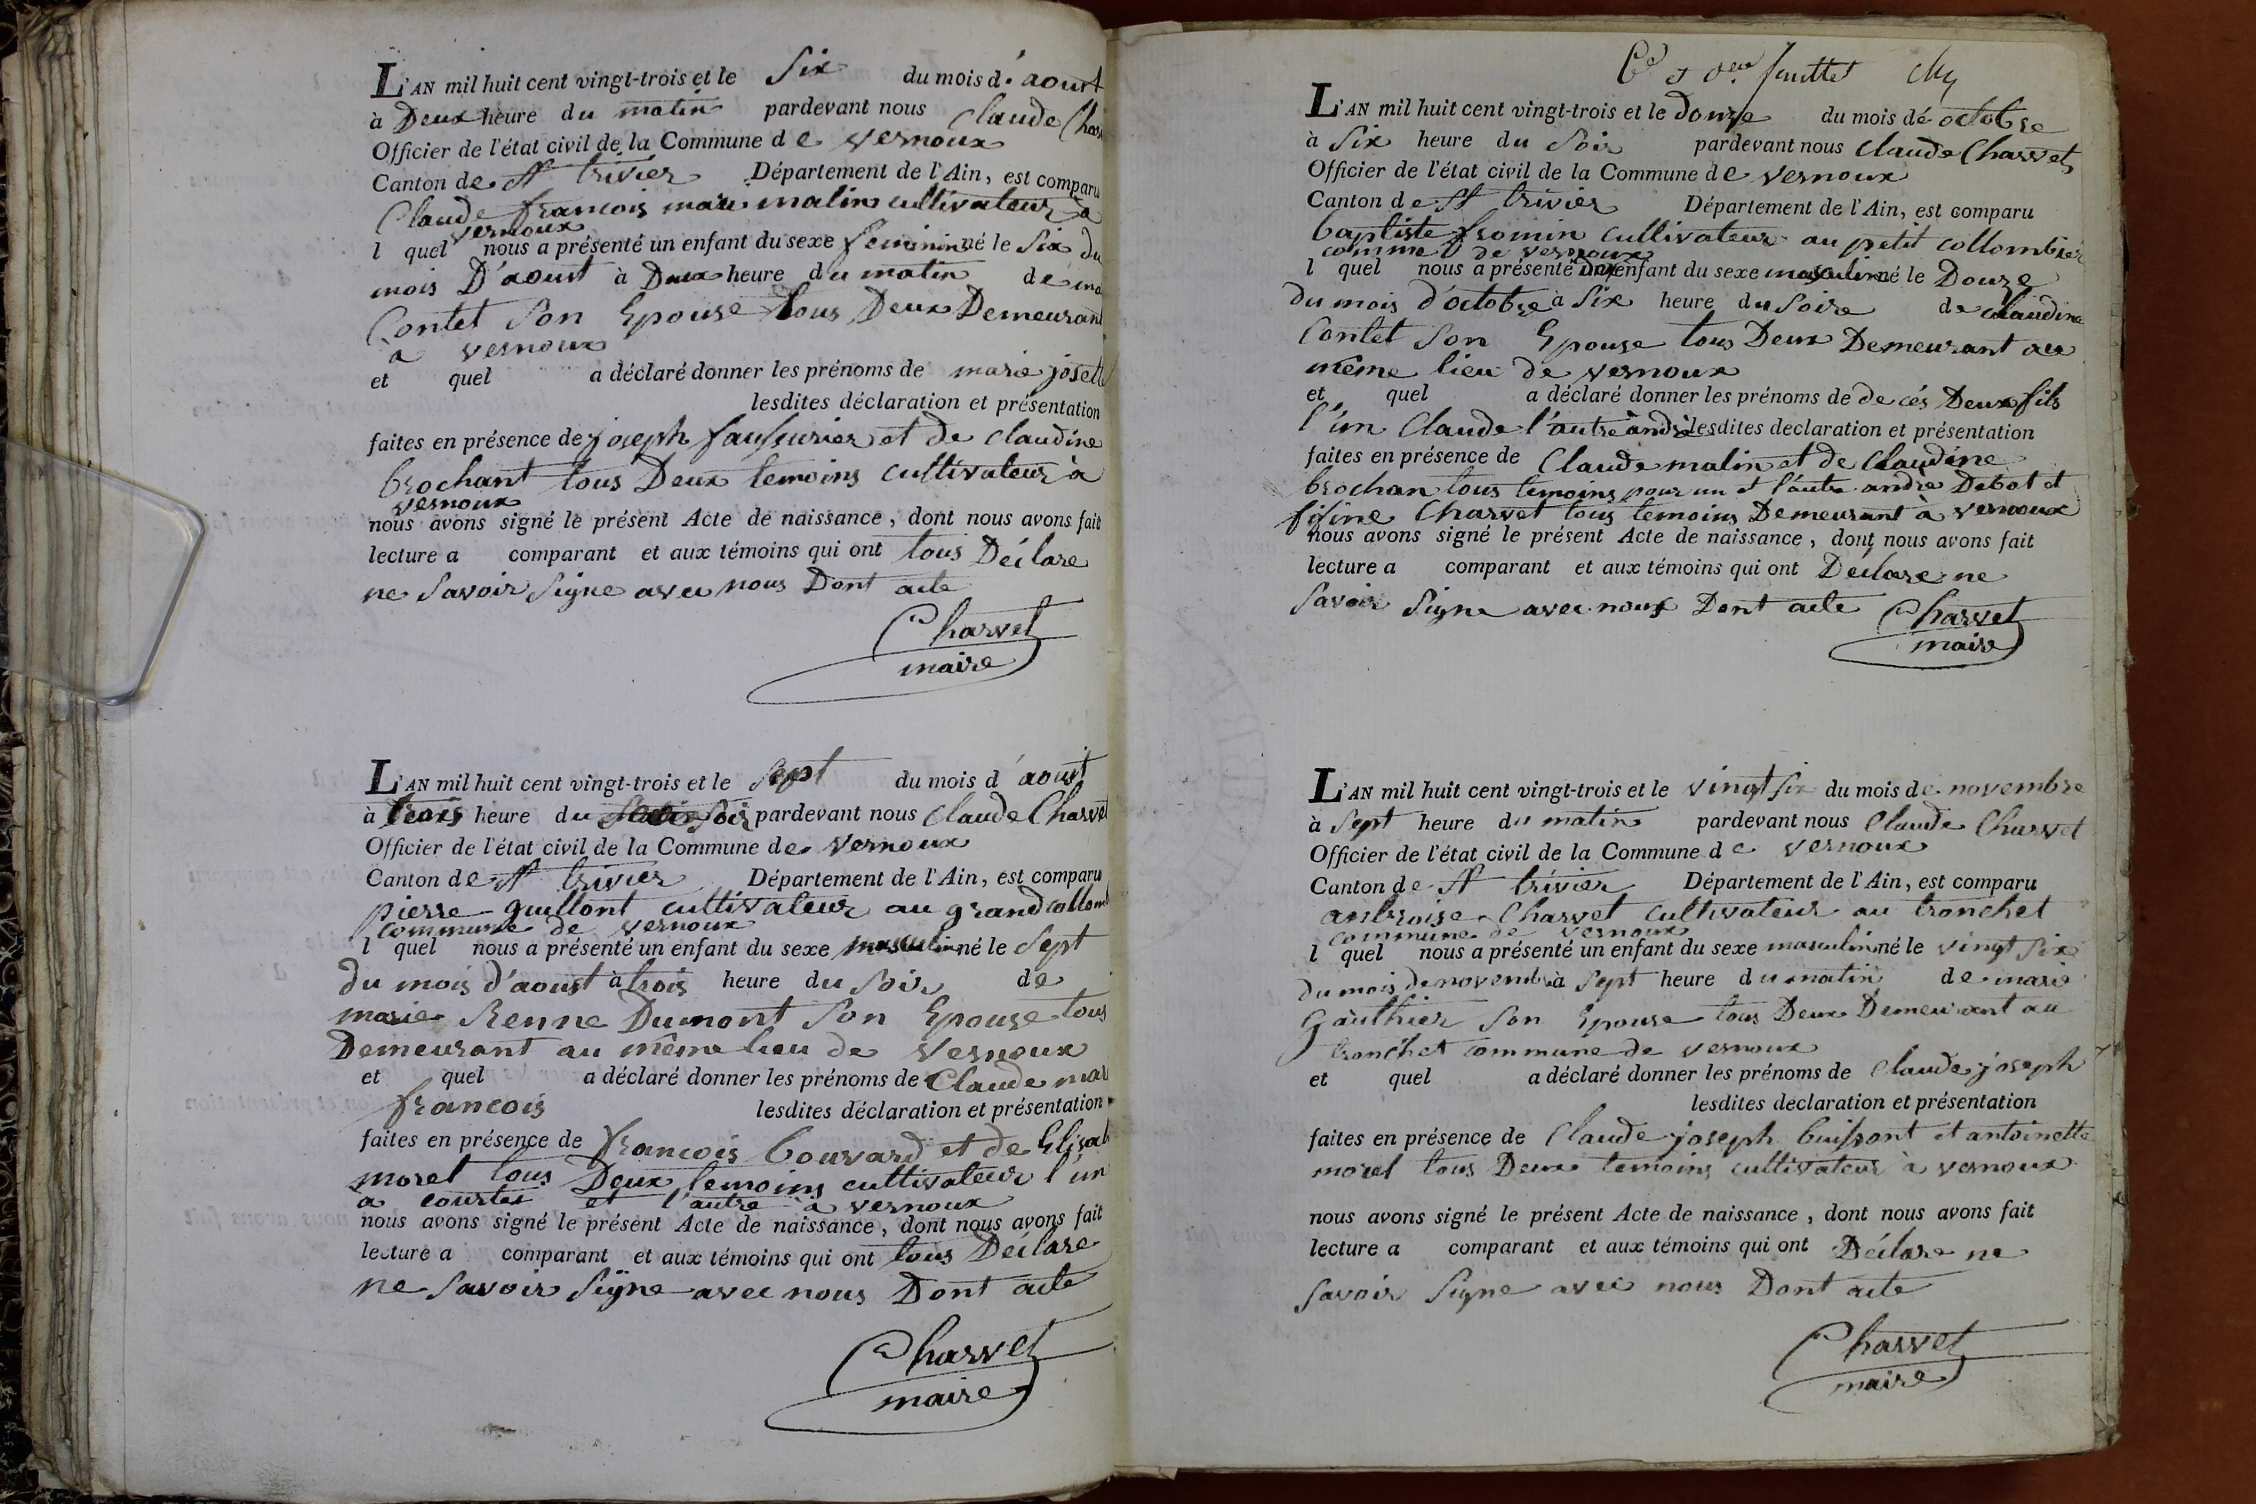 L'AN mil huit cent vingt-trois et le Six du mois d'aoust
à Deux heure du matin pardevant nous Claude Char
Officier de l'état civil de la Commune de vernoux
Canton de St trivier Département de l'Ain, est comparu
Claude francois marie matin cultivateur à
vernoux
l quel nous a présenté un enfant du sexe feminin né le Six du
mois D'aoust à Deux heure du matin de ma
Contet Son Epouse tous Deux Demeurant
a vernoux
et quel a déclaré donner les prénoms de marie josette
lesdites déclaration et présentation
faites en présence de joseph et de claudine
brochant tous Deux temoins cultivateur à
vernoux
nous avons signé le présent Acte de naissance, dont nous avons fait
lecture a comparant et aux témoins qui ont tous Déclare
ne Savoir Signe avec nous Dont acte
Charvet
maire
L'AN mil huit cent vingt-trois et le Sept du mois d'aoust
à trois heure du Soir pardevant nous Claude Charvet
Officier de l'état civil de la Commune de vernoux
Canton de St trivier Département de l'Ain, est comparu
pierre guillont cultivateur au grand collomb
commune de vernoux
l quel nous a présenté un enfant du sexe masculin né le Sept
du mois d'aoust à trois heure du Soir de
marie Renne Dumont Son Epouse tous
Demeurant au même lieu de vernoux
et quel a déclaré donner les prénoms de Claude mar
francois lesdites déclaration et présentation
faites en présence de francois bouvard et de Elisab
morel tous Deux temoins cultivateur l'un
a courtes et l'autre à vernoux
nous avons signé le présent Acte de naissance, dont nous avons fait
lecture a comparant et aux témoins qui ont tous Déclare
ne Savoir Signe avec nous Dont acte
Charvet
maire
feuillet
L'AN mil huit cent vingt-trois et le Douze du mois de octobre
à Six heure du Soir pardevant nous Claude Charvet
Officier de l'état civil de la Commune de vernoux
Canton de St trivier Département de l'Ain, est comparu
baptiste fromin cultivateur au petit collombier
comme de vernoux
l quel nous a présenté Deux enfant du sexe masculin né le Douze
du mois d'octobre à Six heure du Soire de claudine
Contet Son Epouse tous Deux Demeurant au
même lieu de vernoux
et quel a déclaré donner les prénoms de de cés Deux fils
l'un Claude l'autre andré lesdites declaration et présentation
faites en présence de Claude matin et de Claudine
brochan tous temoins pour un et l'autre andré Debot et
fifine Charvet tous temoins Demeurant à vernoux
nous avons signé le présent Acte de naissance, dont nous avons fait
lecture a comparant et aux témoins qui ont Déclare ne
Savoir Signe avec nous Dont acte
Charvet
maire
L'AN mil huit cent vingt-trois et le vingt Six du mois de novembre
à Sept heure du matin pardevant nous Claude Charvet
Officier de l'état civil de la Commune de vernoux
Canton de St trivier Département de l'Ain, est comparu
anbroise Charvet cultivateur au tronchet
commune de vernoux
l quel nous a présenté un enfant du sexe masculin né le vingt Six
du mois de novemb à Sept heure du matin de marie
Gauthier Son Epouse tous Deux Demeurant au
tronchet commune de vernoux
et quel a déclaré donner les prénoms de Claude joseph
lesdites declaration et présentation
faites en présence de Claude joseph buissont et antoinette
morel tous Deux temoins cultivateur à vernoux
nous avons signé le présent Acte de naissance, dont nous avons fait
lecture a comparant et aux témoins qui ont Déclare ne
Savoir Signe avec nous Dont acte
Charvet
maire